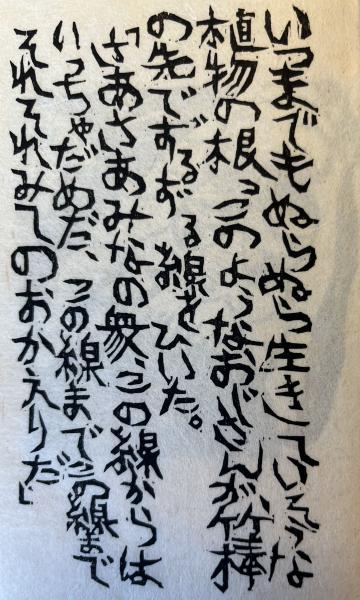 いつまでもぬらぬら生きていそうな
植物の根っこのようなおじさんが竹棒
の先でずるずる線をひいた。
「さあさあみなの衆、この線からは
いっちゃだめだ、この線までこの線まで
それそれみしのおかえりだ」